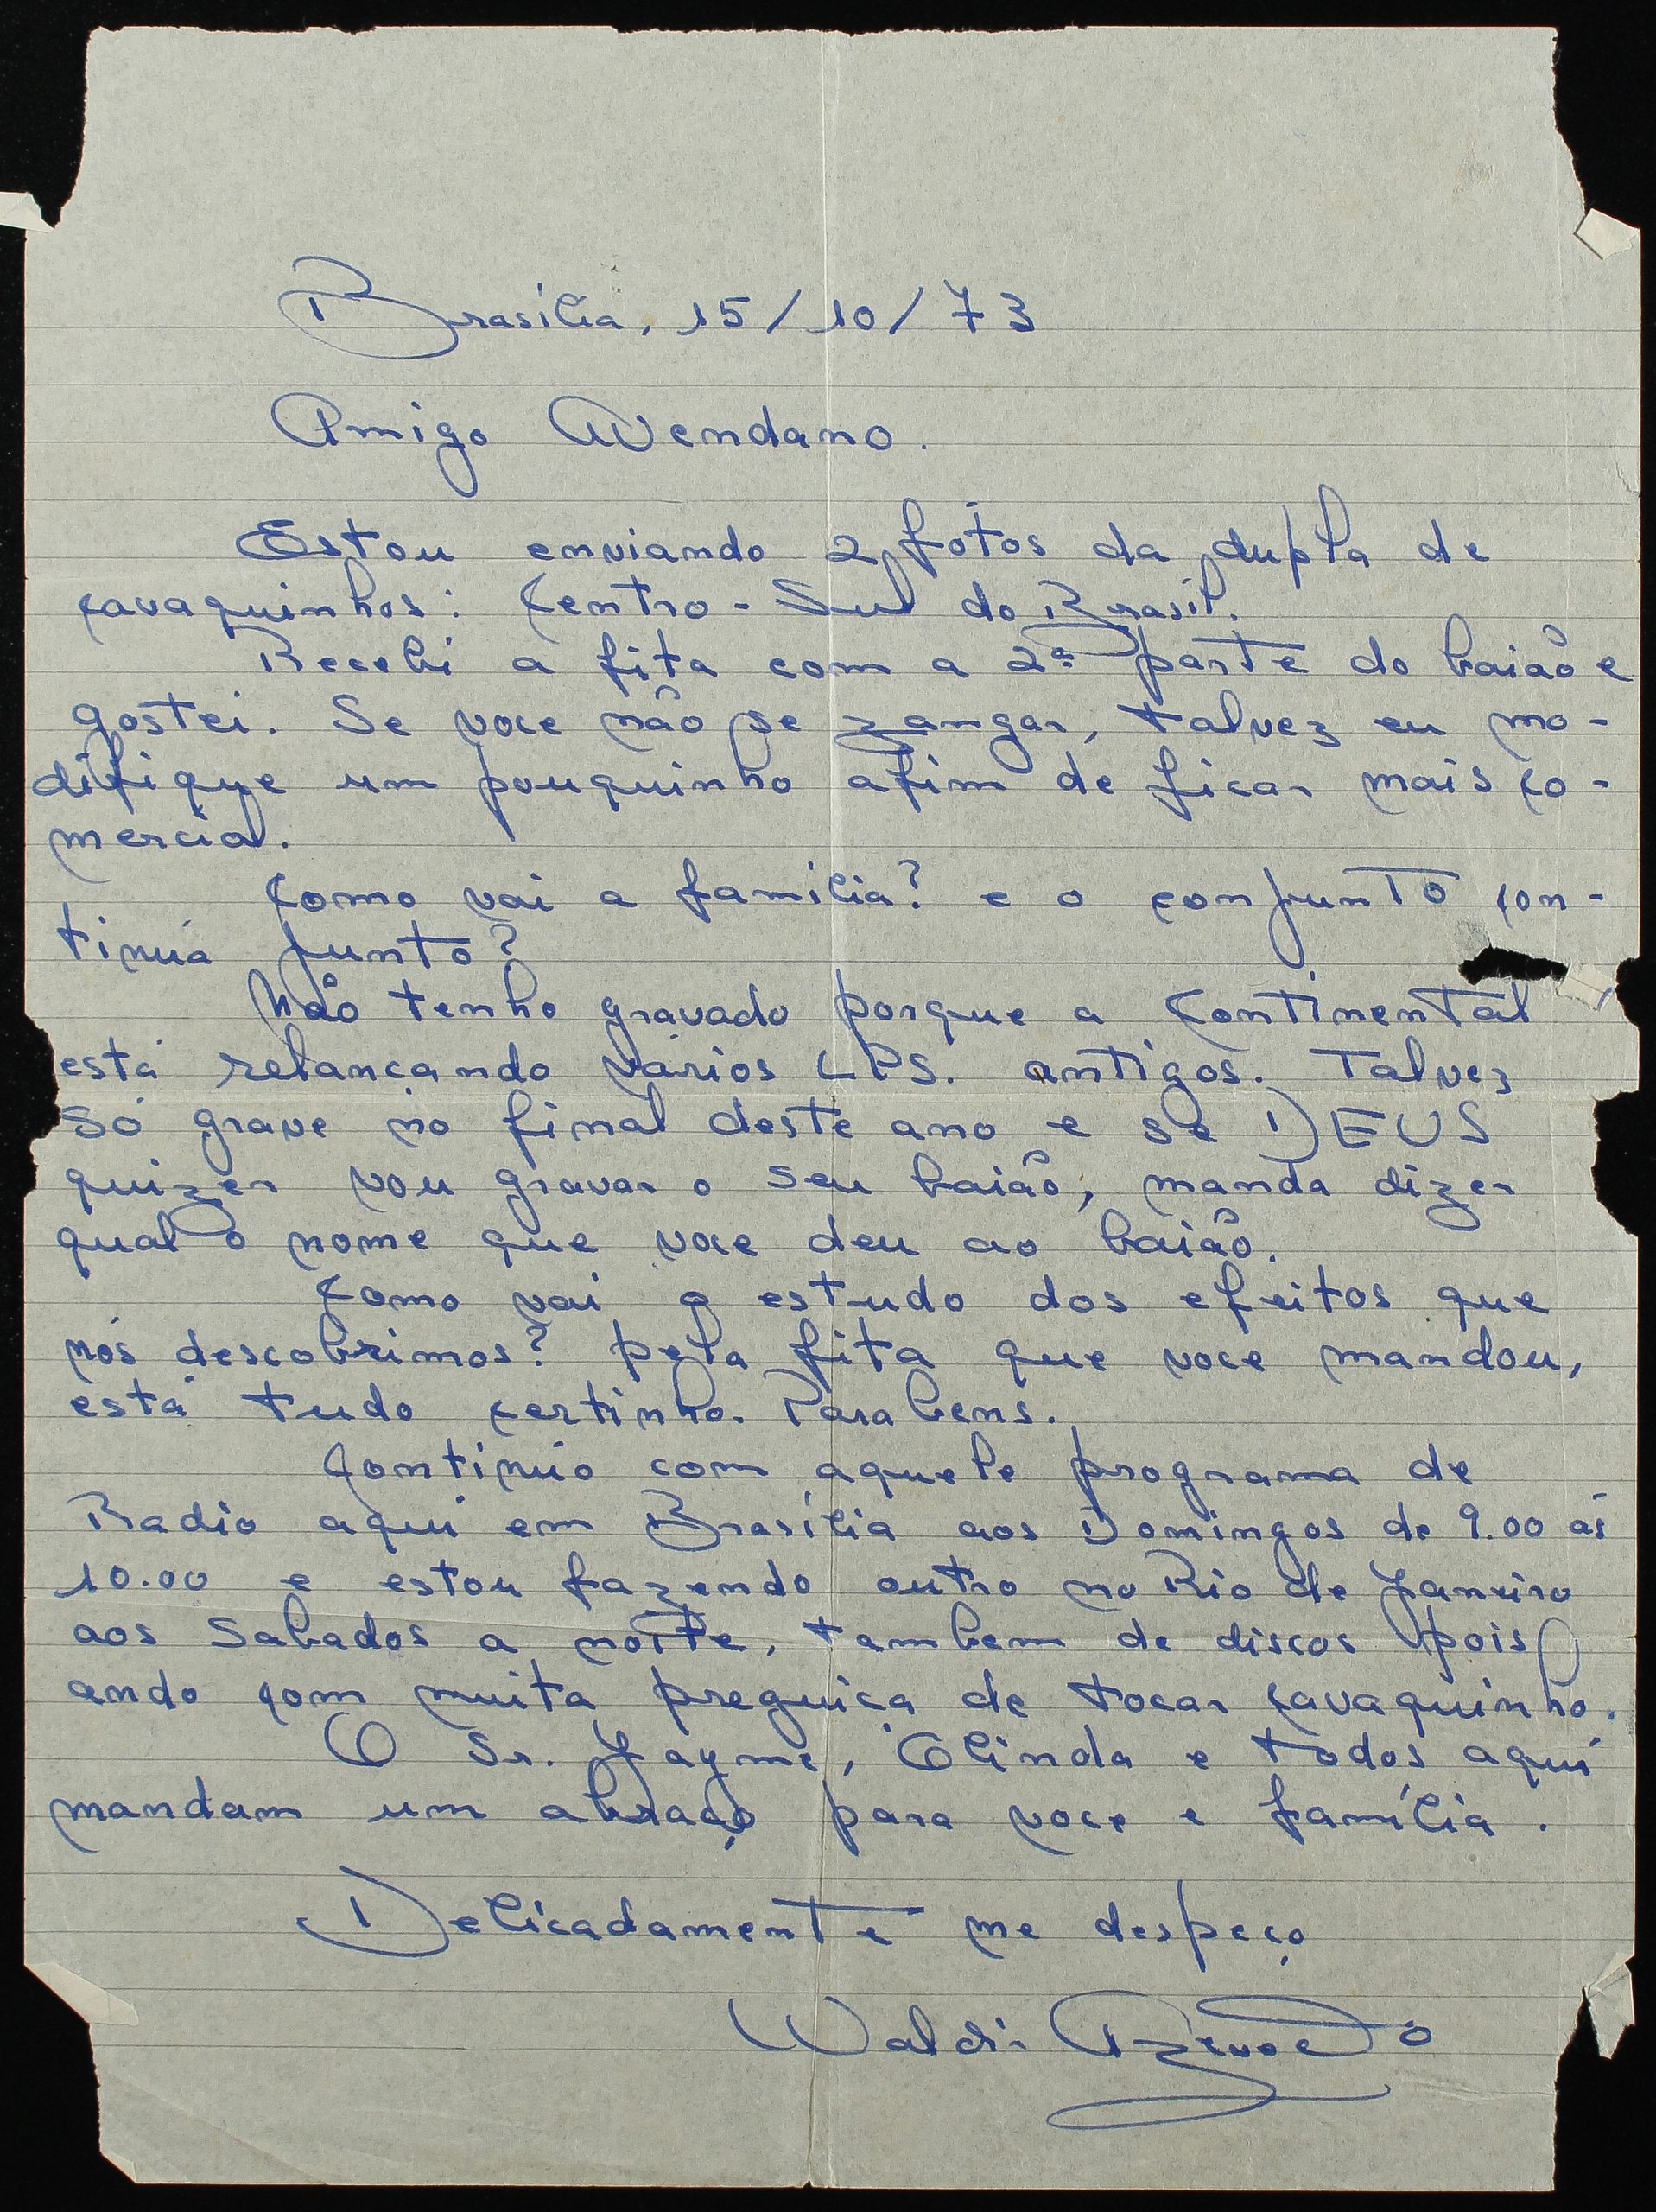 Brasília, 15/10/73
Amigo Avendano.
Estou enviando 2 fotos da dupla de
cavaquinhos: Centro-Sul do Brasil.
Recebi a fita com a 2ª parte do baião e
gostei. Se voce não se zangar, talvez eu mo-
difique um pouquinho afim de ficar mais co-
mercial.
Como vai a familia? e o conjunto con-
tinúa junto?
Não tenho gravado porque a Continental
está relançando vários LPS. antigos. Talvez
só grave no final deste ano e se DEUS
quizer vou gravar o seu baião, manda dizer
qual o nome que voce deu ao baião.
Como vai o estudo dos efeitos que
nós descobrimos? pela fita que voce mandou,
está tudo certinho. Parabens.
Continúo com aquele programa de
Radio aqui em Brasília aos Domingos de 9.00 ás
10.00 e estou fazendo outro no Rio de Janeiro
aos Sabados a noite, tambem de discos pois
ando com muita preguiça de tocar cavaquinho.
O Sr. Jayme, Olinda e todos aqui
mandam um abraço para voce e família.
Delicadamente me despeço
Waldir Azevedo